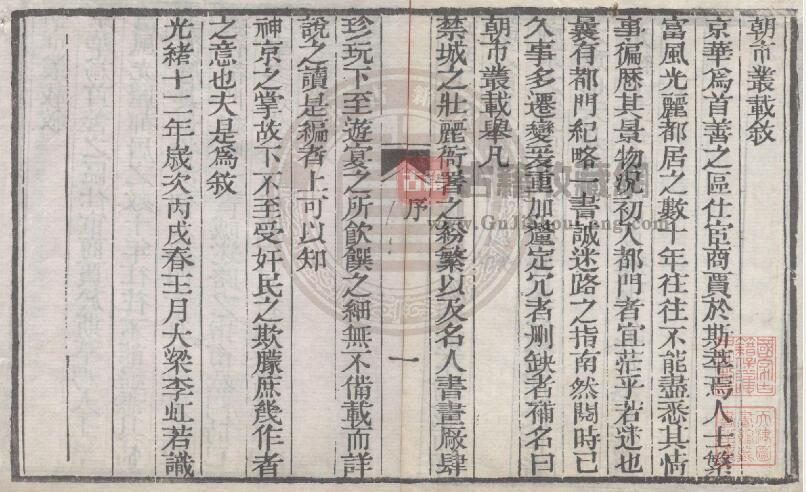 朝市叢載敘
京華爲首善之區仕宦商賈於斯萃焉人士繁
富風光麗都居之數十年往往不能盡悉其情
事徧歷其景物况初入都門者宜茫乎若迷也
曩有都門紀略一書誠迷路之指南然閱時已
久事多遷變爰重加釐定冗者刪缺者補名曰
朝市叢載舉凡
禁城之壯麗衙署之紛繁以及名人書畫厰肆
序
一
珍玩下至遊宴之所飲饌之細無不備載而詳
說之讀是編者上可以知
神京之掌故下不至受奸民之欺朦庶幾作者
之意也夫是爲敘
光緒十二年歲次丙戌春王月大梁李虹若識
古籍
www.GuJiShouCang.com